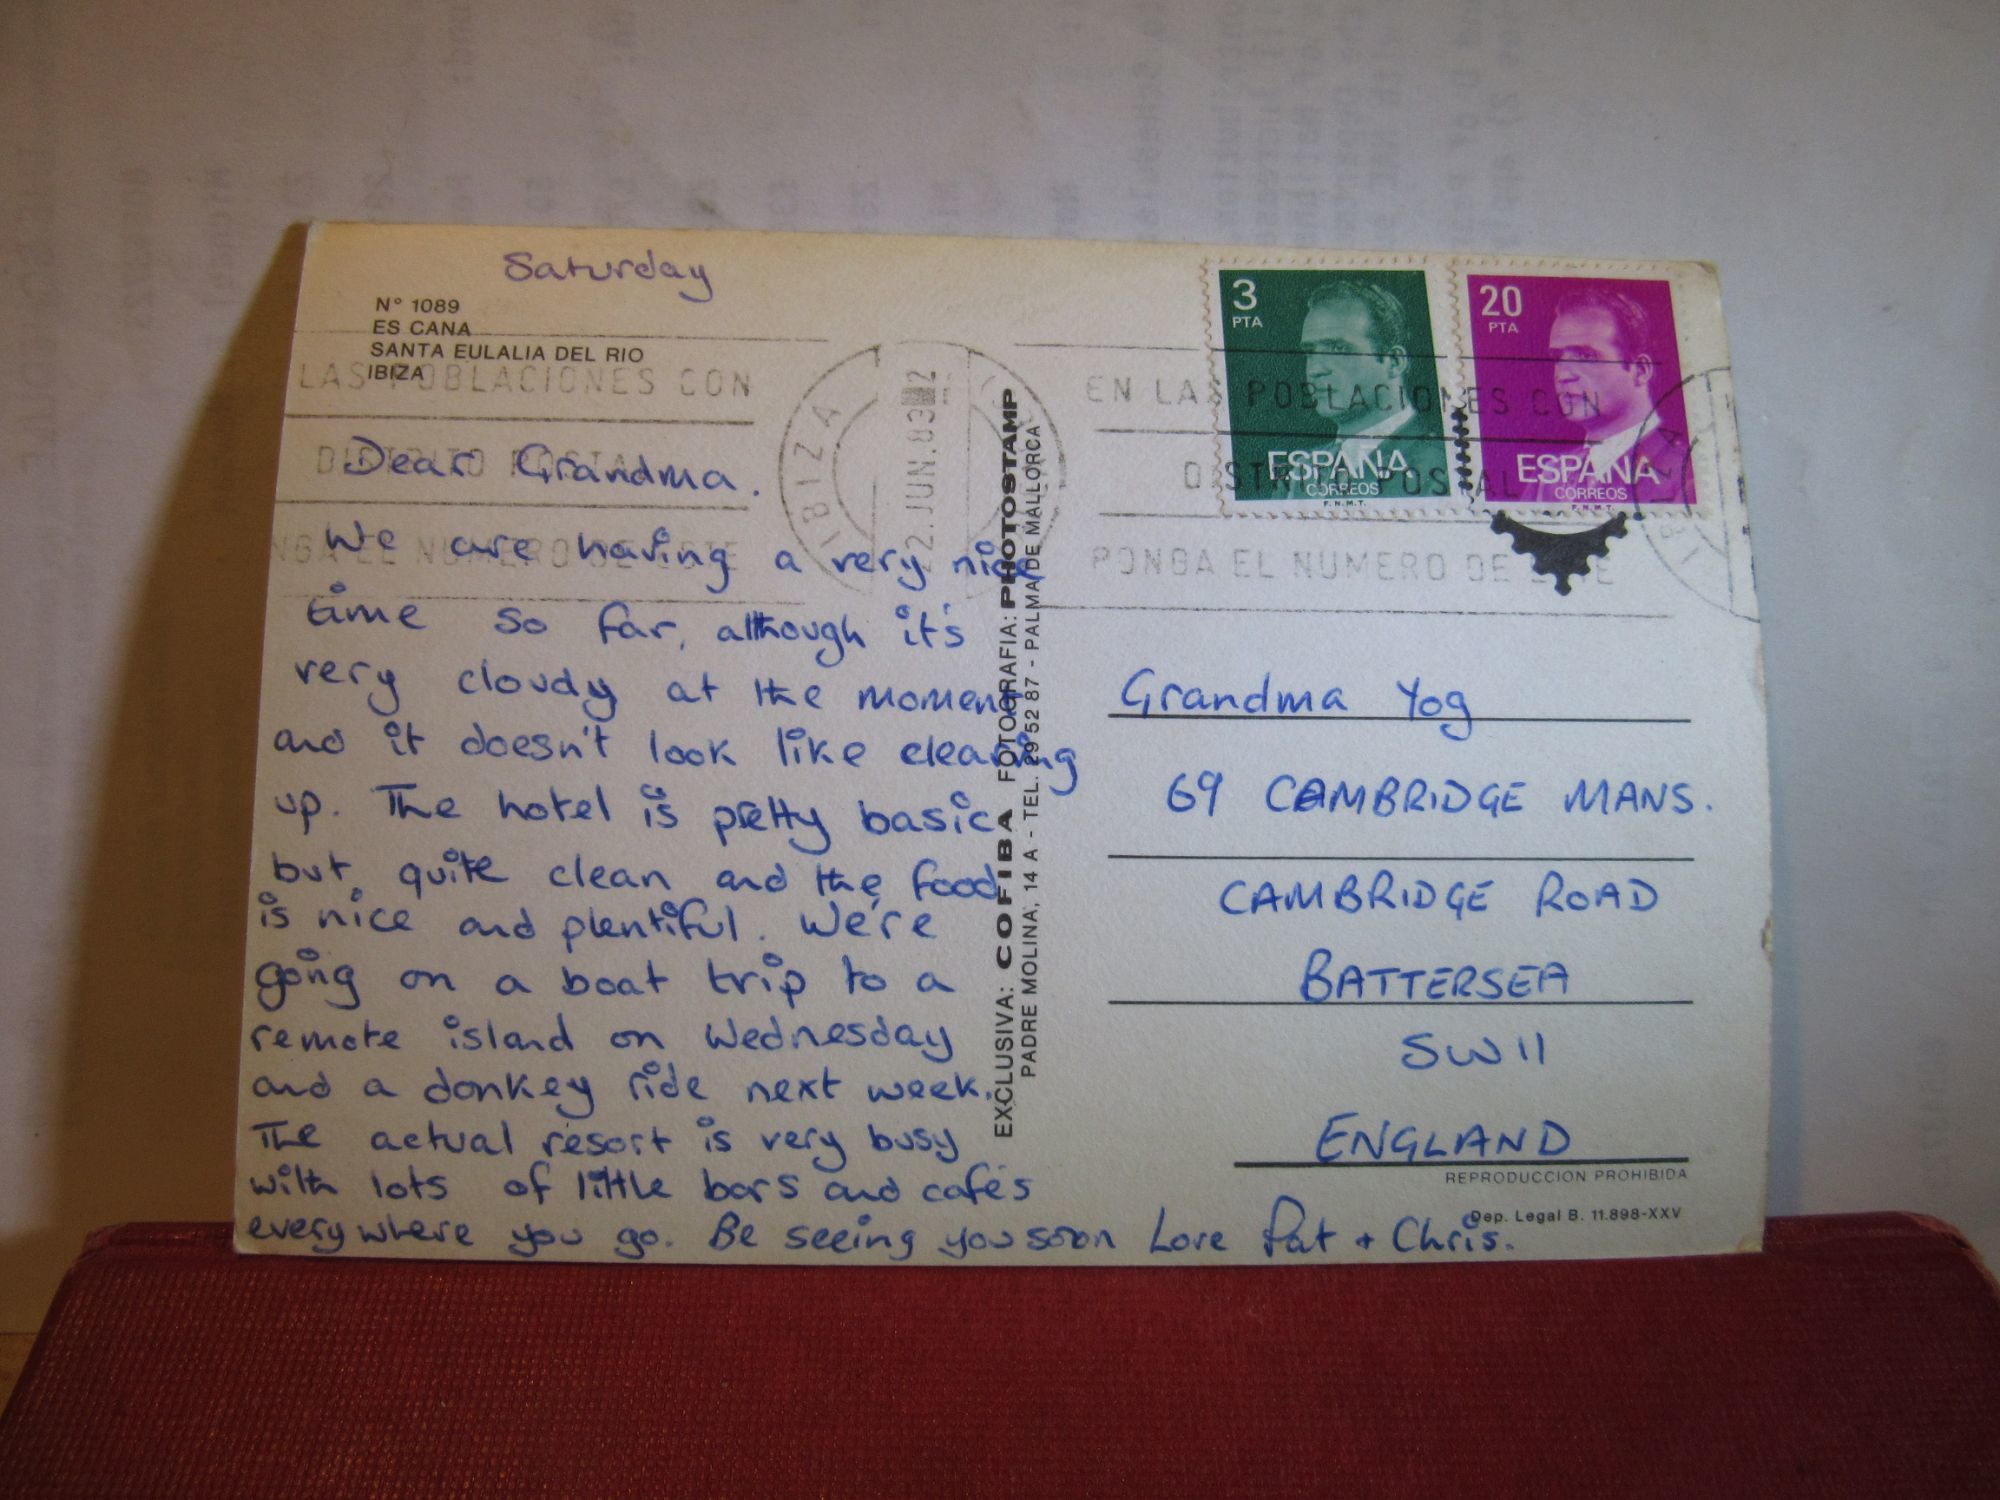 Saturday
N° 1089
ES CANA
SANTA EULALIA DEL RIO
IBIZA
LAS POBLACIONES CON
DISTRITO POSTAL
PONGA EL NUMERO DE ESTE
IBIZA
22.JUN.83
EN LAS POBLACIONES CON
DISTRITO POSTAL
PONGA EL NUMERO DE ESTE
3
PTA
ESPAÑA
CORREOS
F.N.M.T.
20
PTA
ESPAÑA
CORREOS
F.N.M.T.
Dear Grandma.
We are having a very nice
time so far, although it's
very cloudy at the moment
and it doesn't look like clearing
up. The hotel is pretty basic
but quite clean and the food
is nice and plentiful. We're
going on a boat trip to a
remote island on Wednesday
and a donkey ride next week.
The actual resort is very busy
with lots of little bars and cafés
everywhere you go. Be seeing you soon Love Pat + Chris.
EXCLUSIVA: COFIBA FOTOGRAFIA: PHOTOSTAMP
PADRE MOLINA, 14 A - TEL. 29 52 87 - PALMA DE MALLORCA
Grandma Yog
69 CAMBRIDGE MANS.
CAMBRIDGE ROAD
BATTERSEA
SW11
ENGLAND
REPRODUCCION PROHIBIDA
Dep. Legal B. 11.898-XXV